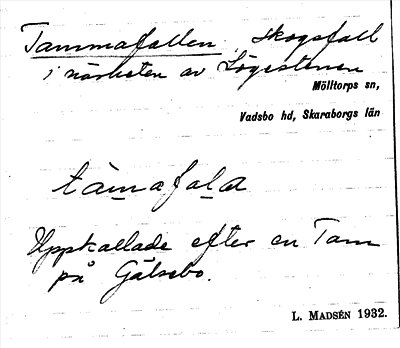 Tammafallen, skogsfall
i närheten av Lögestenen
Mölltorps sn,
Vadsbo hd, Skaraborgs län
tàmafala
Uppkallade efter en Tam
på Gälsebo.
L. MADSÉN 1932.